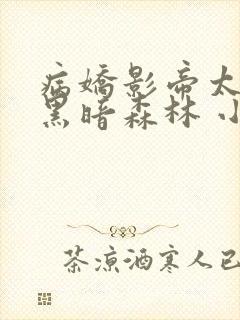 病嬌影帝太
黑暗森林 小
茶涼酒寒人已